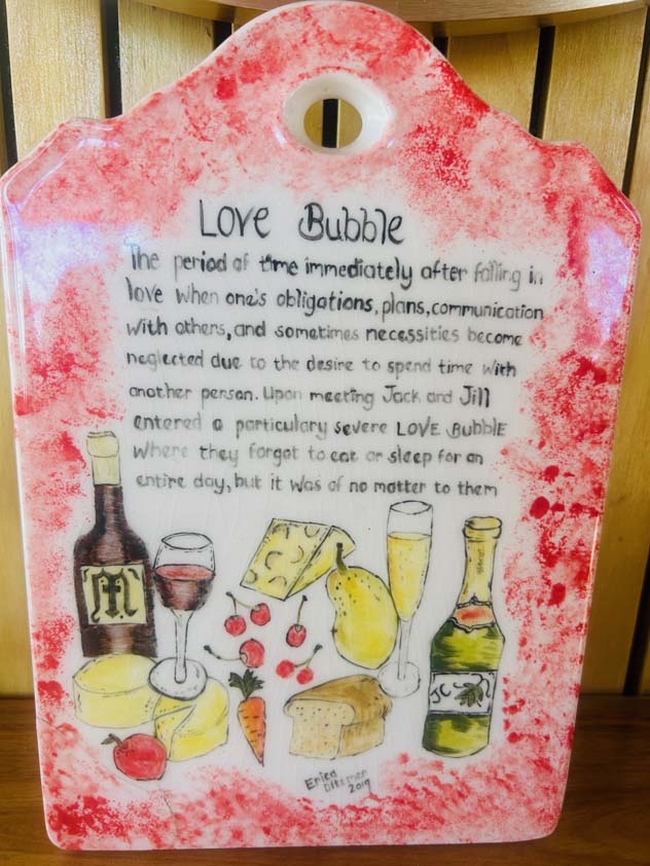 Love Bubble
The period of time immediately after falling in
love when one's obligations, plans, communication
with others, and sometimes necessities become
neglected due to the desire to spend time with
another person. Upon meeting Jack and Jill
entered a particulary severe LOVE BubblE
where they forgot to eat or sleep for an
entire day, but it was of no matter to them
M
JC
Erica
2019